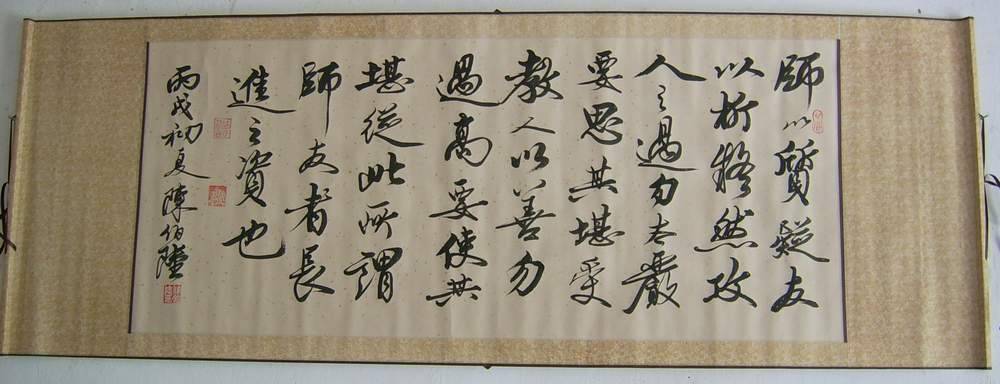 師以質疑友
以析然攻
人之過勿太嚴
要思其堪受
教人以善勿
過高要使其
堪從此所謂
師友者長
進之資也
丙戌初夏陳伯